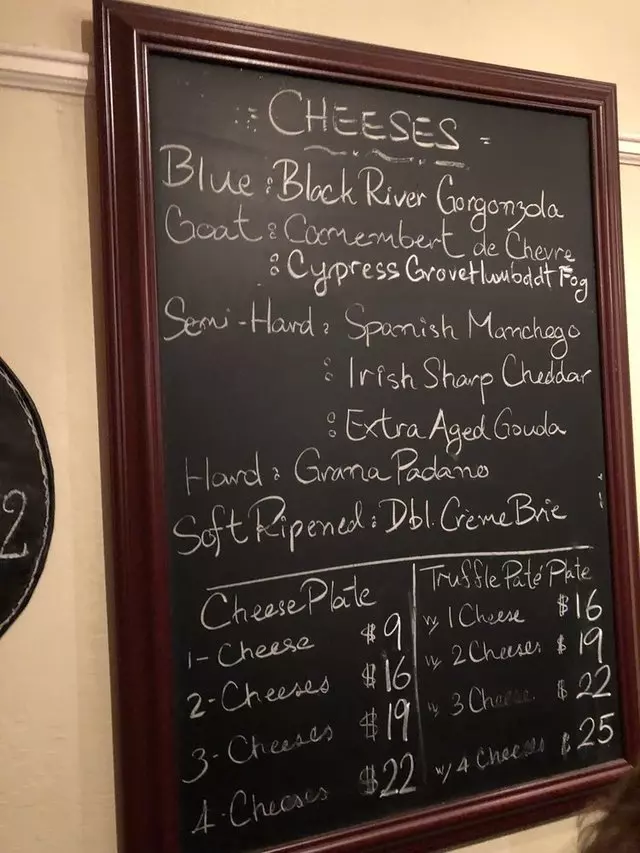 CHEESES
Blue: Black River Gorgonzola
Goat: Camembert de Chevre
: Cypress Grove Humboldt Fog
Semi-Hard: Spanish Manchego
: Irish Sharp Cheddar
: Extra Aged Gouda
Hard: Grana Padano
Soft Ripened: Dbl. Crème Brie
Cheese Plate
1- Cheese $9
2- Cheeses $16
3- Cheeses $19
4- Cheeses $22
Truffle Paté Plate
w/ 1 Cheese $16
w/ 2 Cheeses $19
w/ 3 Cheese $22
w/ 4 Cheeses $25
2